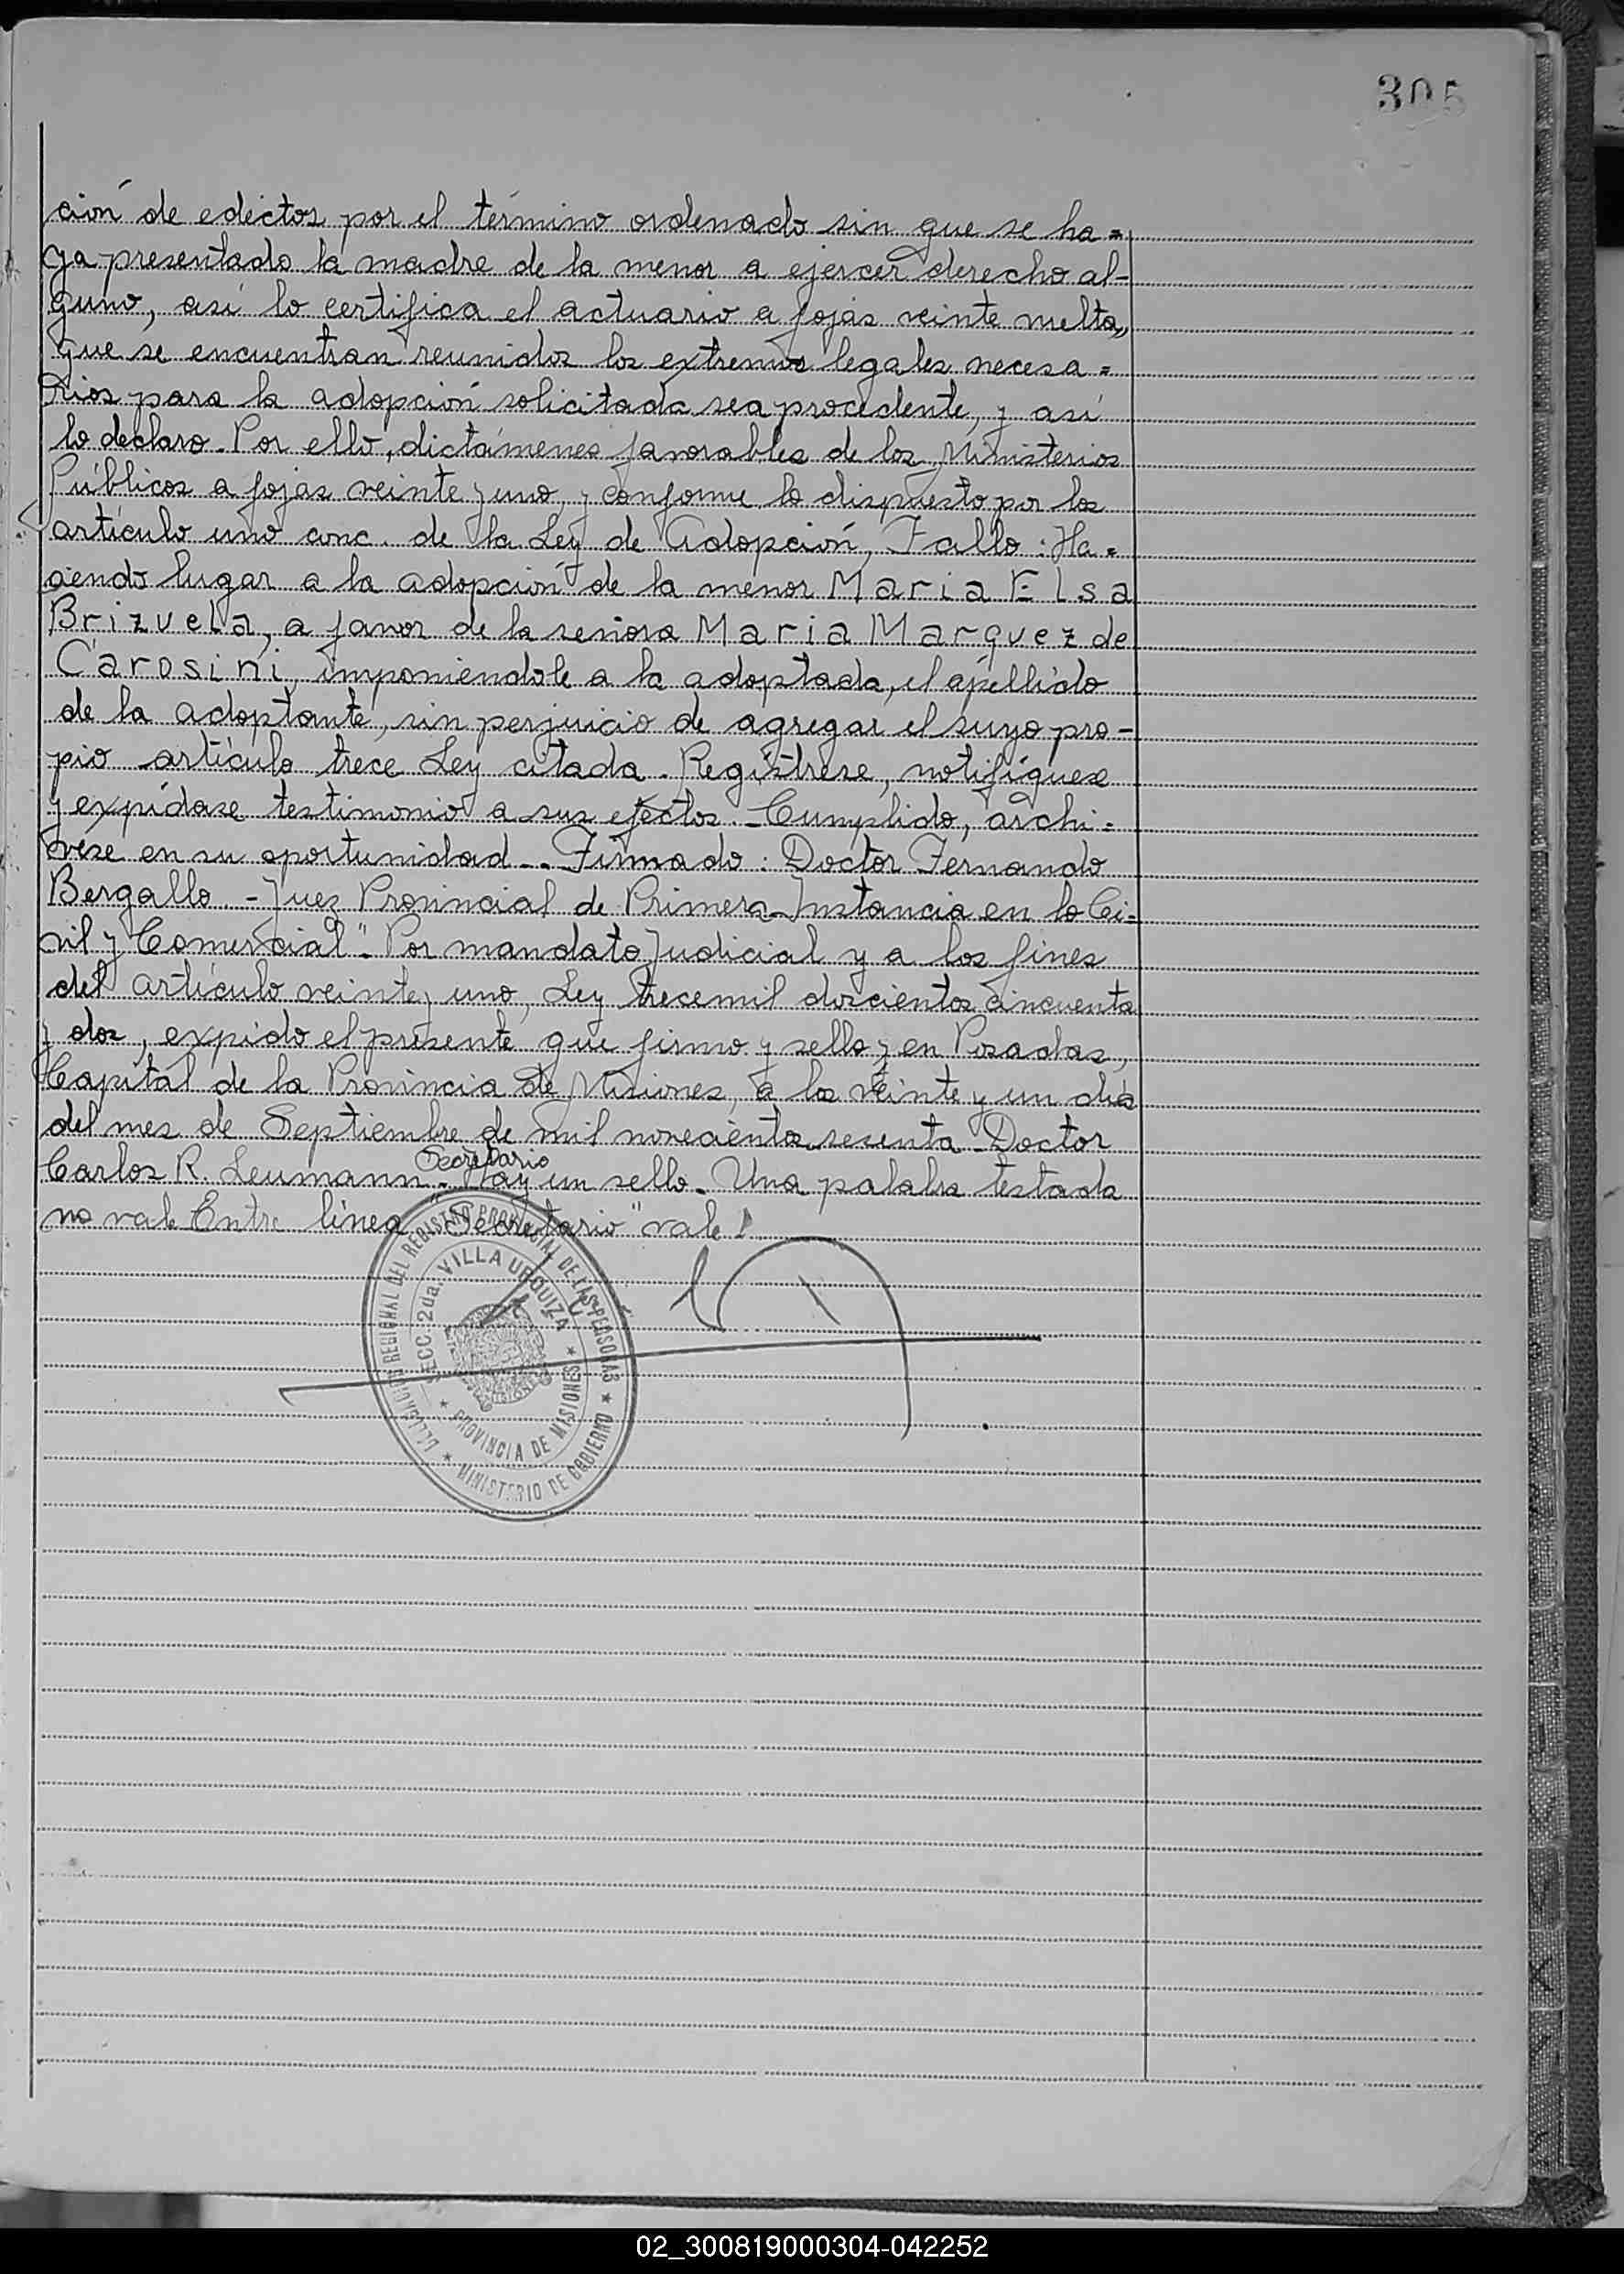 305
ción de edictos por el término ordenado sin que se ha=
ya presentado la madre de la menor a ejercer derecho al-
guno, así lo certifica el actuario a fojas veinte vuelta,
que se encuentran reunidos los extremos legales necesa=
rios para la adopción solicitada sea procedente, y así
lo declaro. Por ello, dictámenes favorables de los Ministerios
Públicos a fojas veinte y uno, y conforme lo dispuesto por los
artículo uno conc. de la Ley de Adopción, Fallo: Ha=
ciendo lugar a la adopción de la menor Maria Elsa
Brizuela, a favor de la señora Maria Marquez de
Carosini, imponiendole a la adoptada, el apellido
de la adoptante, sin perjuicio de agregar el suyo pro-
pio artículo trece Ley citada. Regístrese, notifíquese
y expídase testimonio a sus efectos. - Cumplido, archi=
vese en su oportunidad.. Firmado: Doctor Fernando
Bergallo. - Juez Provincial de Primera Instancia en lo Ci=
vil y Comercial". Por mandato Judicial y a los fines
del artículo veinte y uno, Ley trecemil doscientos cincuenta
y dos, expido el presente que firmo y sello y en Posadas,
Capital de la Provincia de Misiones, a los veinte y un día
del mes de Septiembre de mil novecientos sesenta. Doctor
Secretario
Carlos R. Leumann. Hay un sello. Una palabra testada
no vale Entre línea "Secretario" vale
DELEGACION REGIONAL DEL REGISTRO PROVINCIAL DE LAS PERSONAS
SECC. 2da. VILLA URQUIZA
MISIONES
★ PROVINCIA DE MISIONES ★
★ MINISTERIO DE GOBIERNO ★
02_300819000304-042252